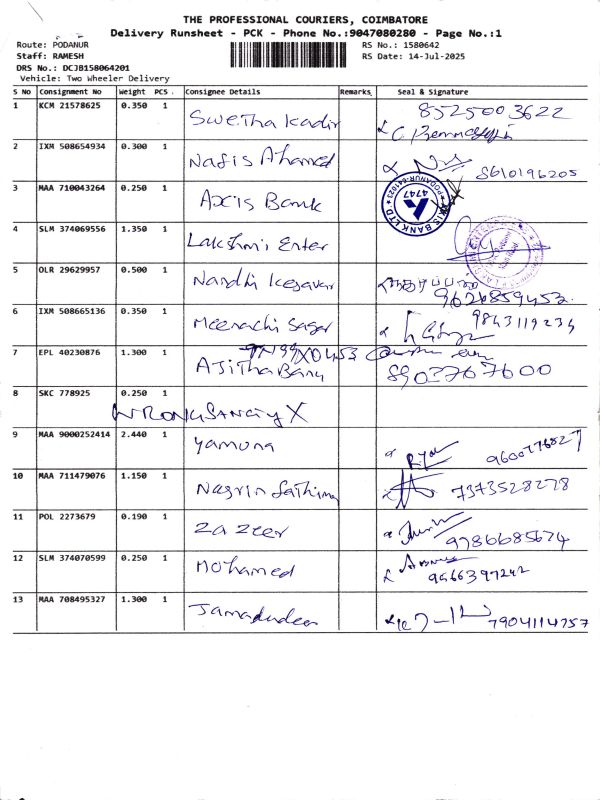 THE PROFESSIONAL COURIERS, COIMBATORE
Delivery Runsheet - PCK - Phone No.:9047080280 - Page No.:1
Route: PODANUR RS No.: 1580642
Staff: RAMESH RS Date: 14-Jul-2025
DRS No.: DCJB158064201
Vehicle: Two Wheeler Delivery
S No Consignment No Weight PCS. Consignee Details Remarks Seal & Signature
1 KCM 21578625 0.350 1 Swetha Kadir 8525003622
2 IXM 508654934 0.300 1 Nafis Ahamed 8610196205
3 MAA 710043264 0.250 1 Axis Bank AXIS BANK LTD PODANUR-641023 4747
4 SLM 374069556 1.350 1 Lakshmi Enter
5 OLR 29629957 0.500 1 Nandhi Kesavar 9626859453
6 IXM 508665136 0.350 1 Meenachi Sagar 9843119234
7 EPL 40230876 1.300 1 AJitha Banu TN99X0453 8903767600
8 SKC 778925 0.250 1 WRONG X
9 MAA 9000252414 2.440 1 Yamuna 9600776527
10 MAA 711479076 1.150 1 Nasrin Fathima 7373528278
11 POL 2273679 0.190 1 Zazeer 9786685674
12 SLM 374070599 0.250 1 Mohamed 9566397242
13 MAA 708495327 1.300 1 Jamaludeen 7904114757